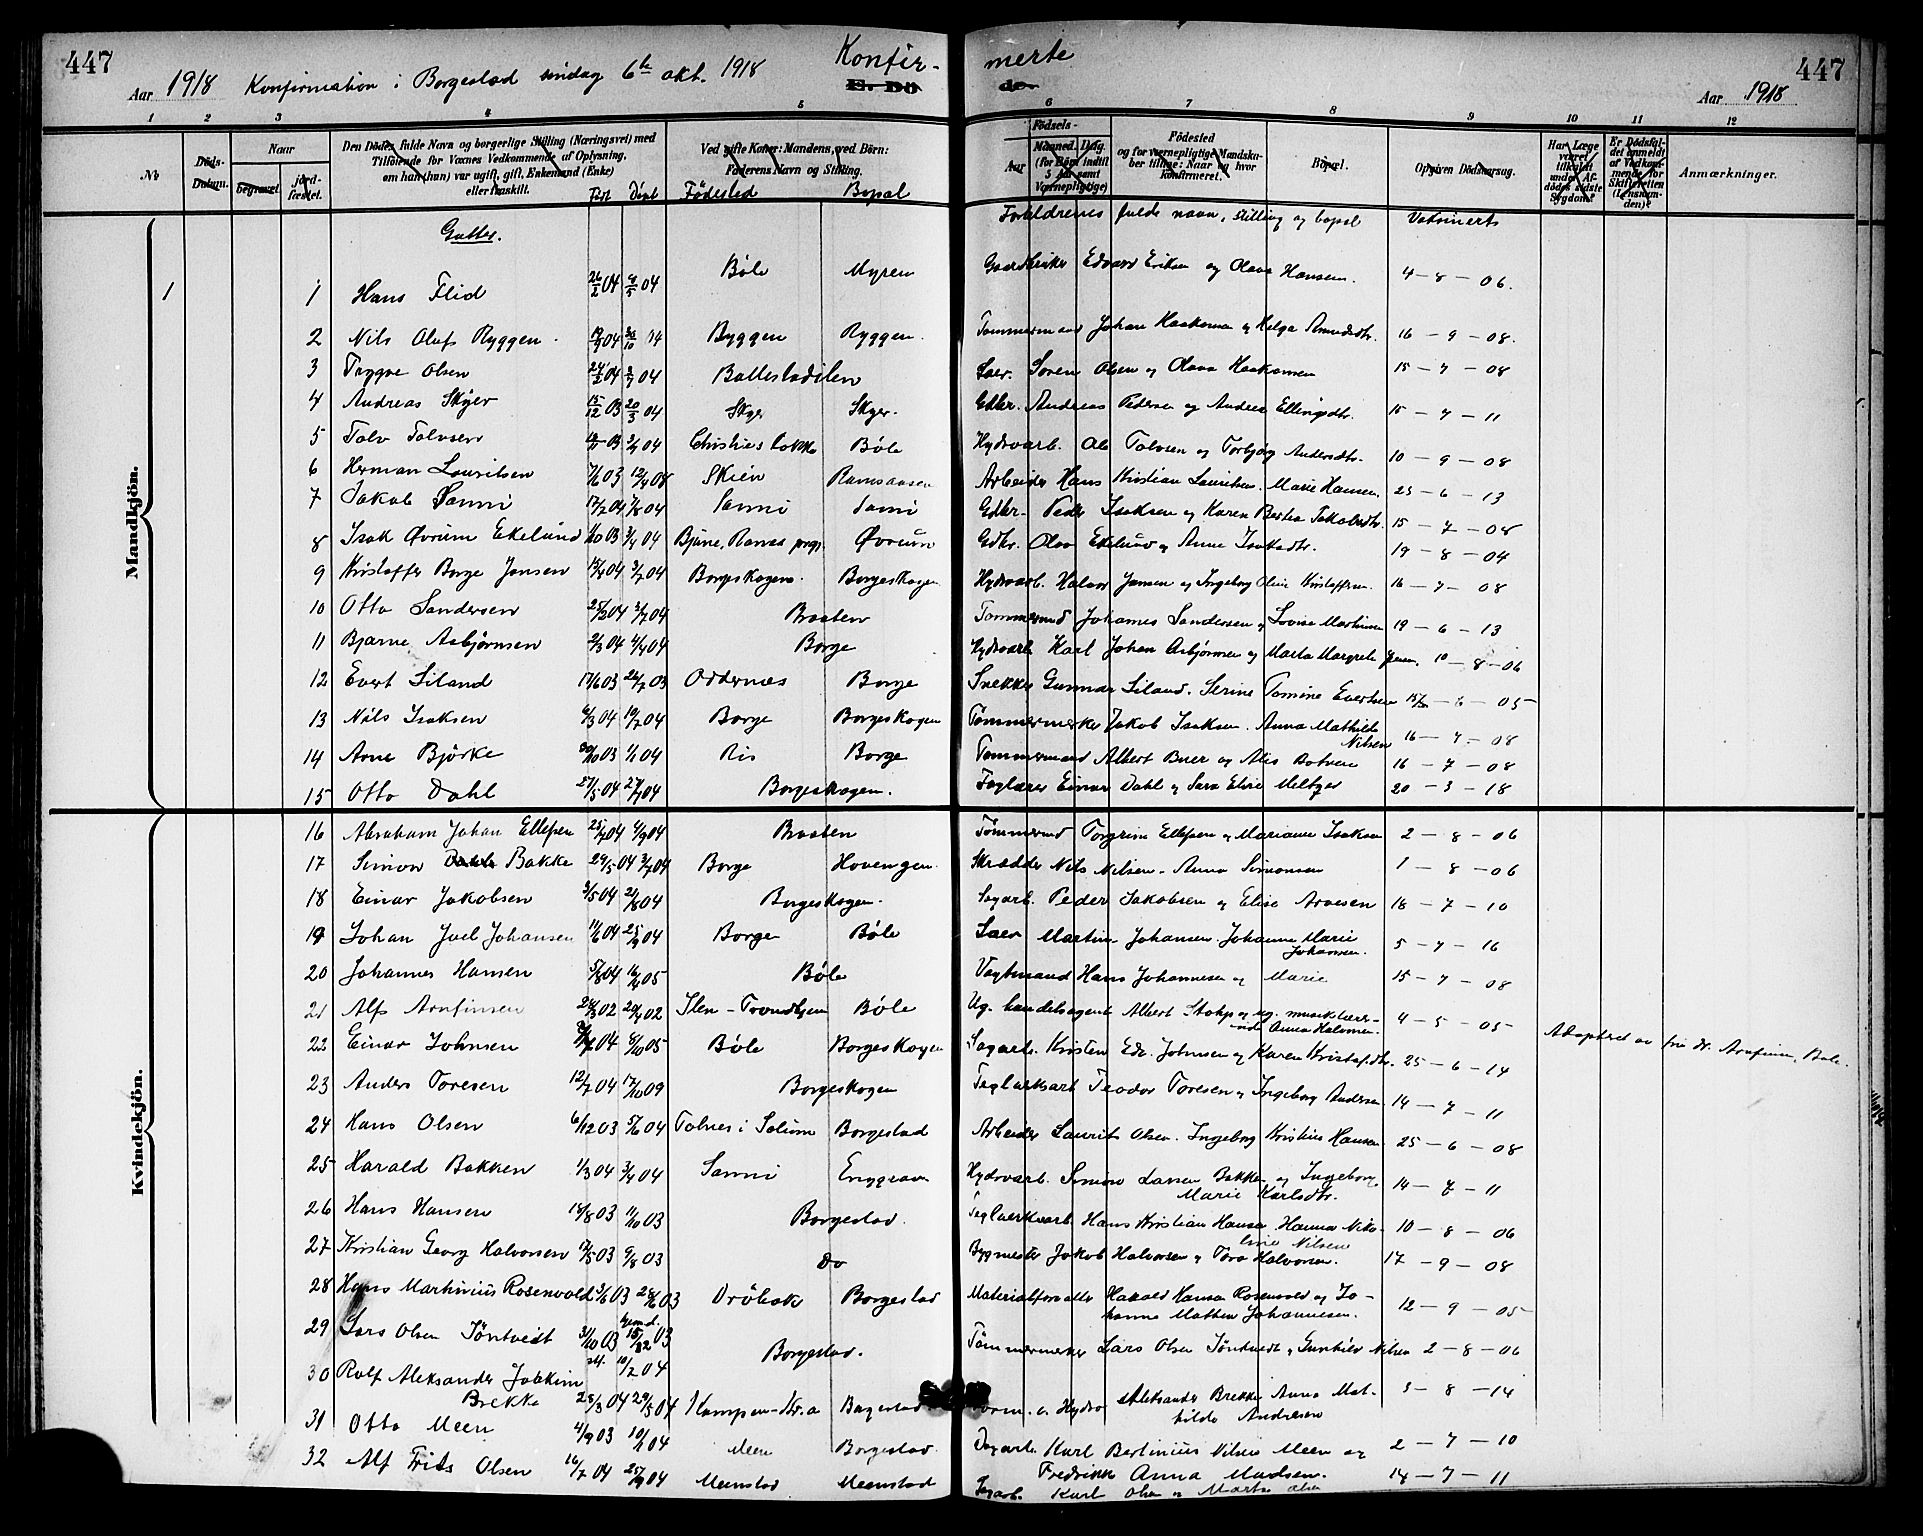 447
447
Aar 1918 Konfirmation i Borgestad søndag 6te okt. 1918 Konfir- merte
E. Dö de.
Aar 1918
1 2 3 4 5 6 7 8 9 10 11 12
No
Döds-Datum.
Naar
begravet.
jord-fæstet.
Den Dödes fulde Navn og borgerlige Stilling (Næringsvei) med
Tilföiende for Voxnes Vedkommende af Oplysning,
om han (hun) var ugift, gift, Enkemand (Enke)
eller fraskilt.
Født Døpt
Ved gifte Koner: Mandens, ved Börn:
Faderens Navn og Stilling.
Fødested Bopæl
Födsels-
Aar
Maaned. Dag.
(for Börn indtil
5 Aar samt
Værnepligtige)
Födested
og for værnepligtige Mandska-
ber tillige: Naar og hvor
konfirmeret.
Bopæl.
Opgiven Dödsaarsag.
Har Læge
været
tilkaldt
under Af-
dödes sidste
Sygdom?
Er Dödsfal-
det anmeldt
af Vedkom-
mende for
Skifteretten
(Lensman-
den)?
Anmærkninger.
Forældrenes fulde navn, stilling og bopæl Vaksinerts
Gutter.
Mandkjön.
Kvindekjön.
1 1 Hans Flid 26/2 04 8/5 04 Bøle Myren Edvard Eriksen og Olava Hansen. 4-8-06.
2 Nils Oluf Ryggen Ryggen Ryggen. Tømmermand Johan Haakonsen og Helga 16-9-08.
3 Trygve Olsen 24/2 04 04 Ballestadilen Søren Olsen og Olava Haakonsen 15-7-08
4 Andreas Skyer 15/12 03 20/3 04 Skyer Skyer. Gdbr. Andreas Pedersen og Andrea Ellingsdtr. 15-7-11
5 Talv Talvsen 03 3/4 04 Christies løkke Bøle Hydroarb. Ole Talvsen og Torbjørg Andersdtr. 10-9-08
6 Herman Lauritsen 03 Skien Ramsaasen Arbeider Hans Kristian Lauritsen. Marie Hansen. 25-6-13
7 Jakob Sanni 17/2 04 7/8 04 Sanni Sanni Gdbr. Peder Isaksen og Karen Bertea Jakobsdtr. 15-7-08
8 Isak Øvrum Ekelund 03 3/4 04 Bjune, Ranes prgj. Øvrum Gdbr. Olav Ekelund og Anne Isaksdtr. 19-8-04
9 Kristoffer Borge Jansen 04 3/7 04 Borgeskogen. Borgeskogen Hydroarb. Halvor Jansen og Ingeborg Olsen Kristoffersen. 16-7-08
10 Otto Sandersen 04 3/7 04 Braaten Tømmermd Johannes Sandersen og Lovise Martinsen 19-6-13
11 Bjarne Asbjørnsen 2/3 04 4/4 04 Borge Hydroarb Karl Johan Asbjørnsen og Marta Margrete 10-8-06
12 Evert Liland 17/6 03 26/7 03 Oddernes Borge Snekker Gunnar Liland. Serine Tomine Evertsen -6-05
13 Nils Isaksen 6/3 04 10/7 04 Borge Borgeskogen Tømmermerker Jakob Isaksen. Anna Mathilde
Nilsen 16-7-08
14 Arne Bjørke 03 1/1 04 Ris Borge Tømmermand Albert Buer og Alis 16-7-08
15 Otto Dahl 27/5 04 04 Borgeskogen. Faglærer Einar Dahl og Sara Elise Meltzer 20-3-18
16 Abraham Johan Ellefsen 04 4/9 04 Braaten Tømmermd Torgrim Ellefsen og Mariane Isaksen 2-8-06
17 Simon Bakke 29/5 04 3/7 04 Borge Hovengen. Skrædder Nils Nilsen. Anna Simonsen 1-8-06
18 Einar Jakobsen 3/5 04 21/8 04 Borgeskogen. Sagarb. Peder Jakobsen og Elise Arvesen 18-7-10
19 Johan Joel Johansen 11/6 04 04 Borge Bøle Martin Johansen. Johanne Marie
Johansen. 5-7-16
20 Johannes Hansen 04 05 Bøle Vagtmand Hans Johannesen og Marie 15-7-08
21 Alf Arnfinsen 02 02 Ilen-Trondhjem Bøle Ug. handelsagent Albert og ug. musiklærer-
inde Anna Halvorsen. 4-5-05 Adopteret av fru dr. Arnfinsen, Bøle.
22 Einar Johnsen 04 8/10 05 Bøle Borgeskogen Sagarb. Kristen Edv. Johnsen og Karen Kristofdtr. 25-6-14
23 Anders Toresen 12/7 04 17/10 09 Borgeskogen Teglverksarb Teodor Toresen og Ingeborg Andersen 14-7-11
24 Hans Olsen 6/12 03 5/6 04 Tolnes i Solum Borgestad Arbeider Laurits Olsen. Ingeborg Kristine Hansen 25-6-08
25 Harald Bakken 1/3 04 3/4 04 Sanni Enggrav Hydroarb. Simon Larsen Bakken og Ingeborg
Marie Karlsdtr. 14-7-11
26 Hans Hansen 14/8 03 11/10 03 Borgestad. Teglverksarb Hans Kristian Hansen Hanna Niko-
line Nilsen 10-8-06
27 Kristian Georg Halvorsen 17/5 03 9/8 03 Do Bygmester Jakob Halvorsen og Tora Halvorsen. 17-9-08
28 Hans Martinius Rosenvold 03 28/6 03 Drøbak Borgestad Materialforvalter Harald Hansen Rosenvold og Jo-
hanne Mathea Johannesen. 12-9-05
29 Lars Olsen Tøntvedt 31/10 03 hjemd. 15/12 03 Borgestad. Tømmermerker Lars Olsen Tøntvedt og Gunhild Nilsen 2-8-06
st. 10/2 04
30 Rolf Aleksander Joakim
Brekke 28/3 04 29/5 04 Kampen-Kr.a Borgestad v. Hydro Aleksander Brekke Anna Mat-
hilde Andresen 3-8-14
31 Otto Meen 4/9 03 10/1 04 Meen Borgestad. Sagarb. Karl Bertinius Nilsen Meen og
Fredrikke Anna Madsen. 2-7-10
32 Alf Frits Olsen 16/7 04 25/9 04 Meenstad Meenstad Sagarb. Karl Olsen og Marte Olsen 14-7-11